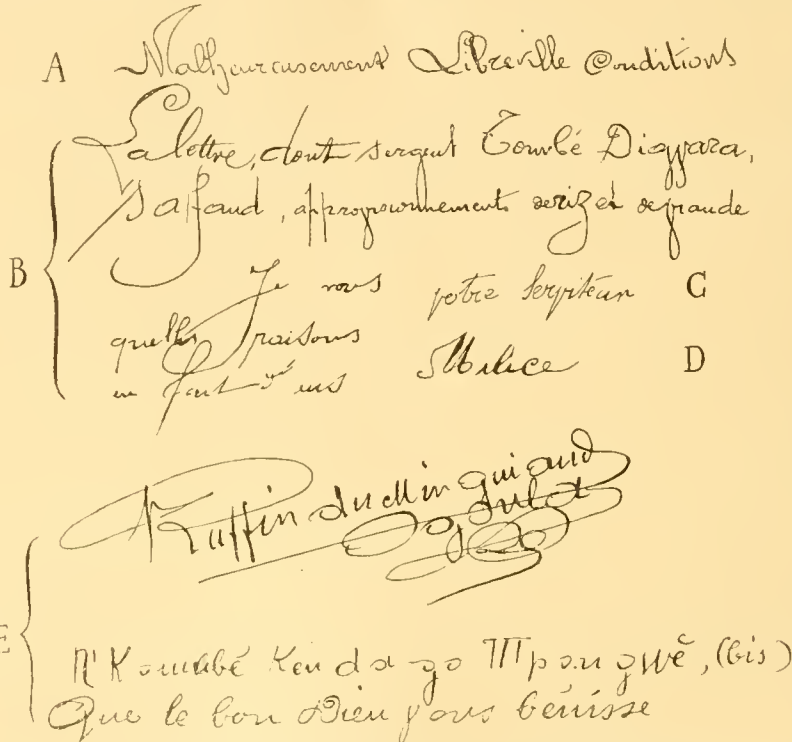 A Malheureusement Libreville Conditions
B La lettre, dont sergent Tombé Diavara,
s'affaud, approvisionnements serizet demande
Je vous votre Serviteur C
quelles raisons
en font ens Milice D
E Ruffin du Minguiand
Julot
N'Kombé Kenda go Mpongwĕ, (bis)
Que le bon Dieu vous bénisse